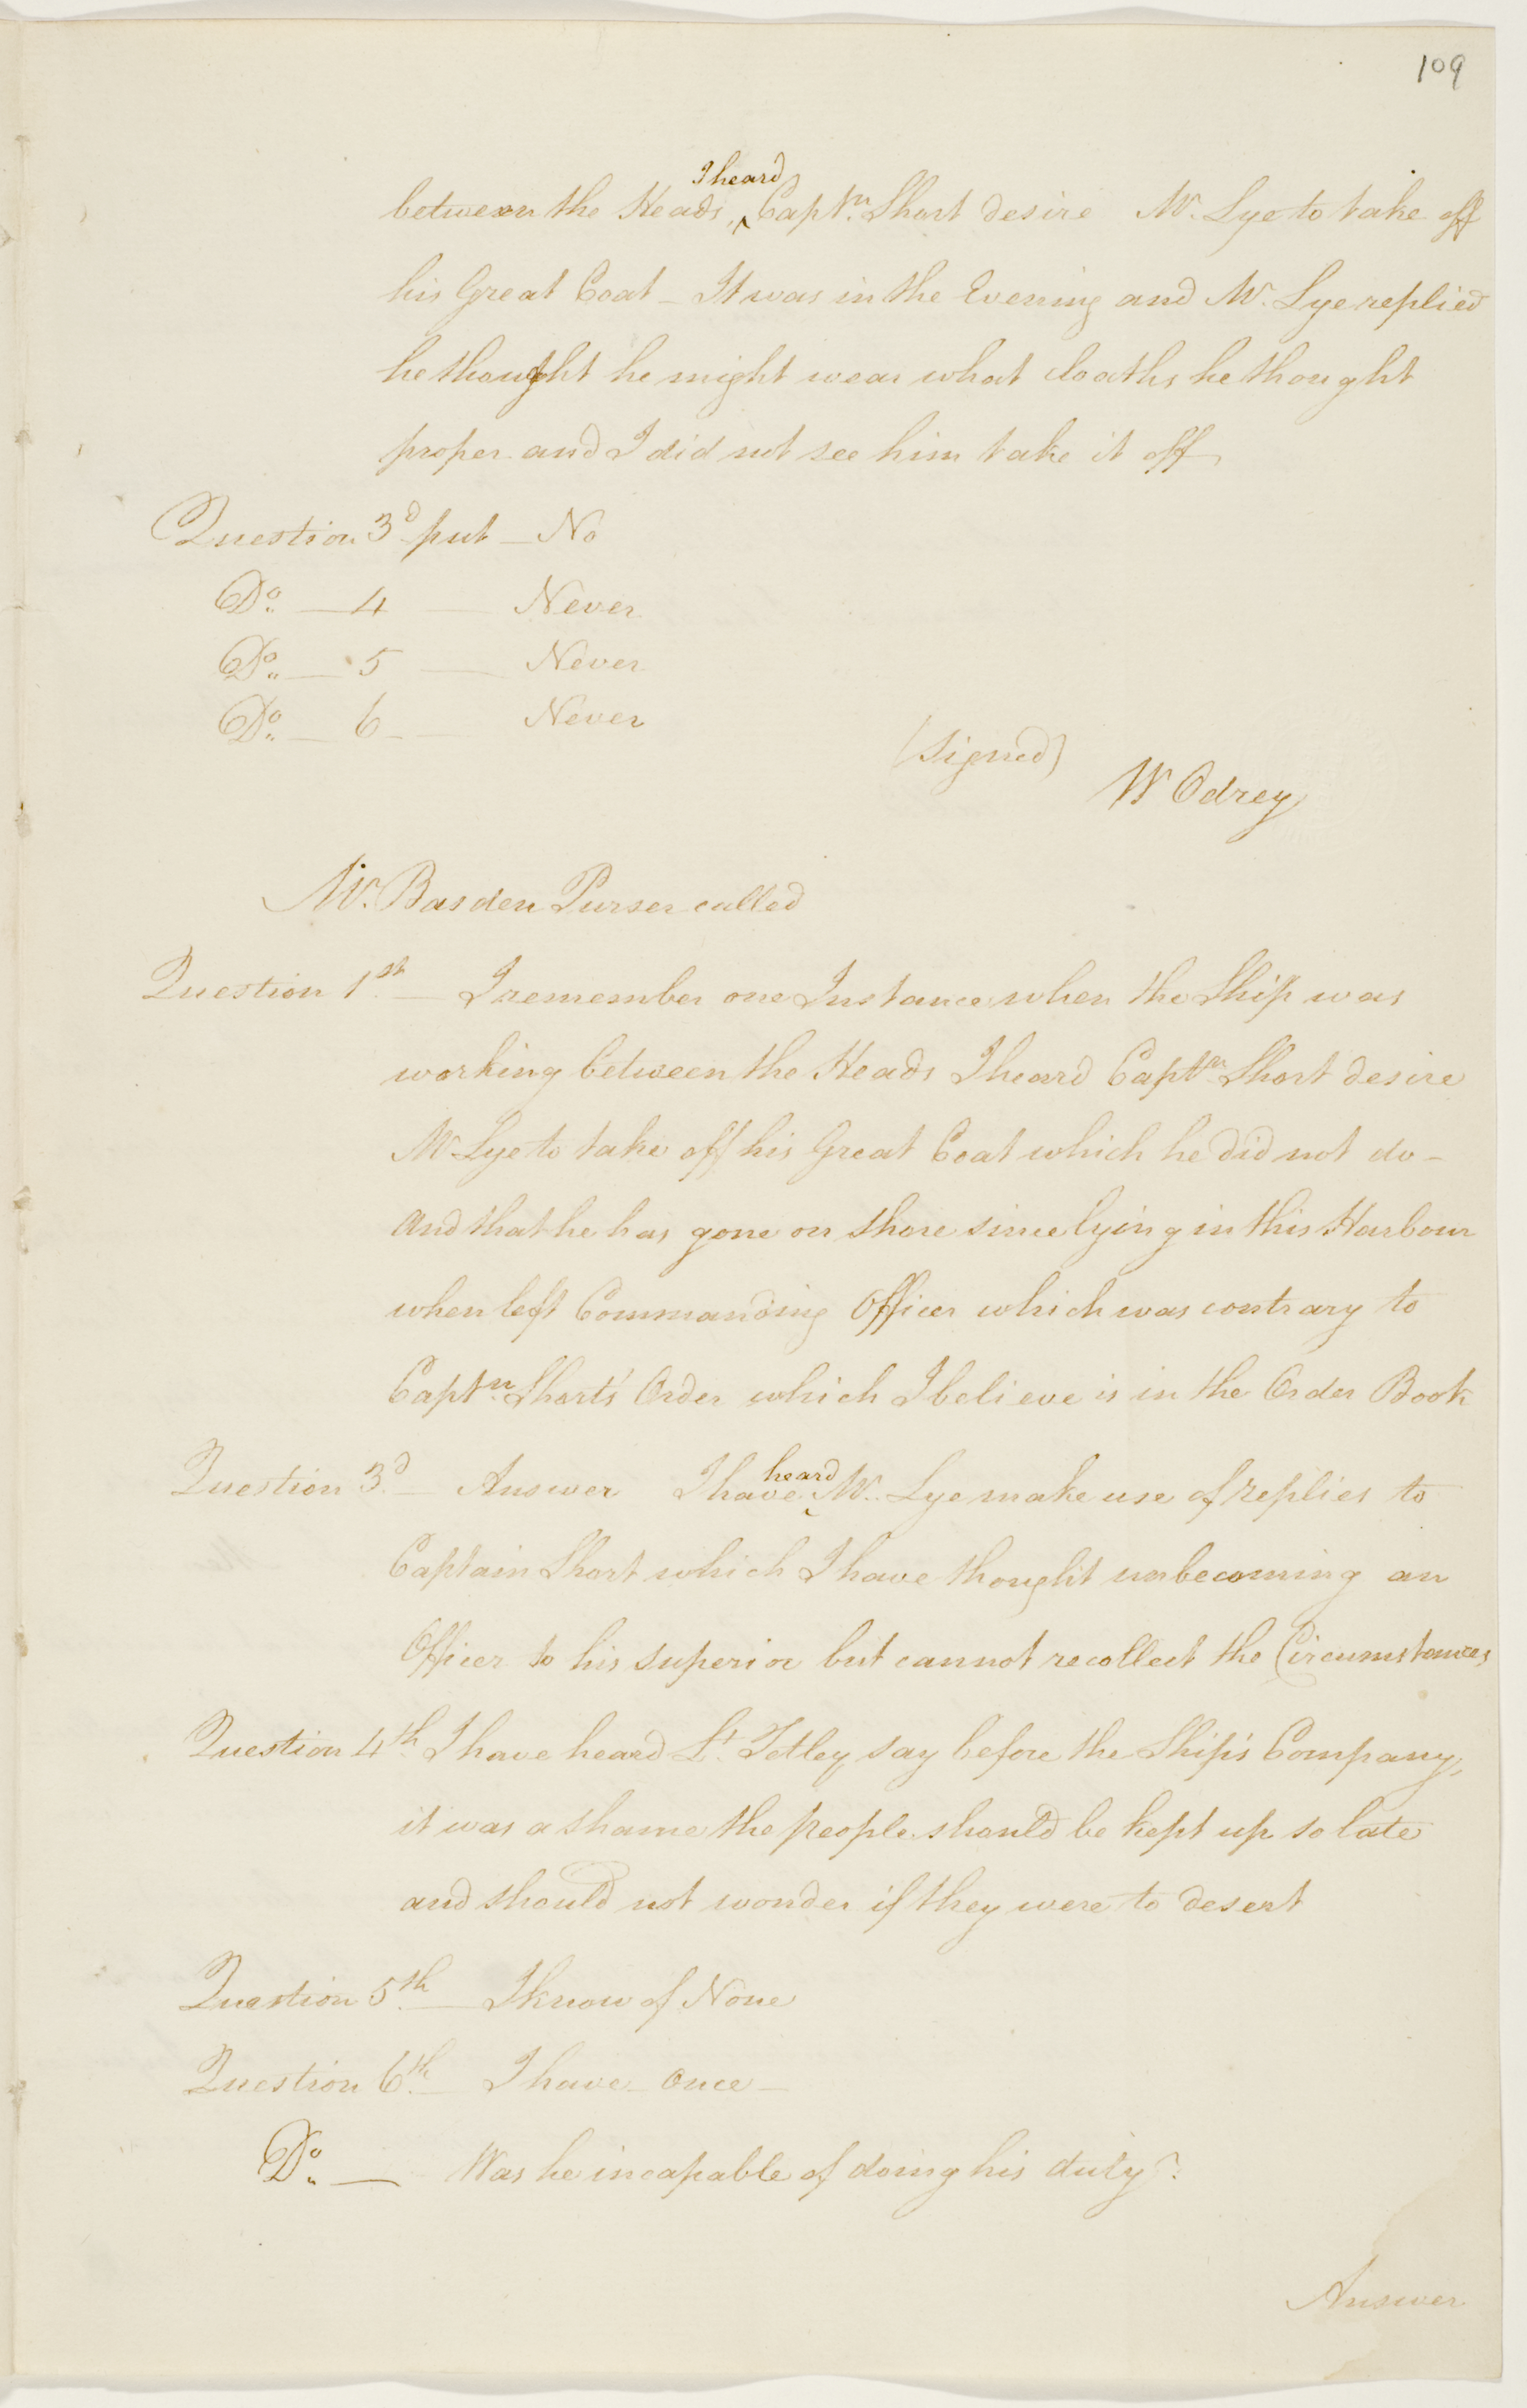 109
between the Heads, I heard Captn. Short desire Mr. Lye to take off
his Great Coat - It was in the Evening and Mr. Lye replied
he thought he might wear what cloaths he thought
proper and I did not see him take it off
Question 3d put - No
Do. - 4 - Never
Do. - 5 - Never
Do. - 6 - Never
(signed)
W Odrey
Mr. Basden Purser called
Question 1st. - I remember one Instance when the Ship was
working between the Heads I heard Captn. Short desire
Mr Lye to take off his Great Coat which he did not do -
And that he has gone on shore since lying in this Harbour
when left Commanding Officer which was contrary to
Captn. Short's Order which I believe is in the Order Book
Question 3d. - Answer I have heard Mr. Lye make use of replies to
Captain Short which I have thought unbecoming an
Officer to his superior but cannot recollect the Circumstances
Question 4th. I have heard Lt. Tetley say before the Ship's Company,
it was a shame the people should be kept up so late
and should not wonder if they were to desert
Question 5th. - I know of None
Question 6th. - I have - Once -
Do. - Was he incapable of doing his duty?
Answer